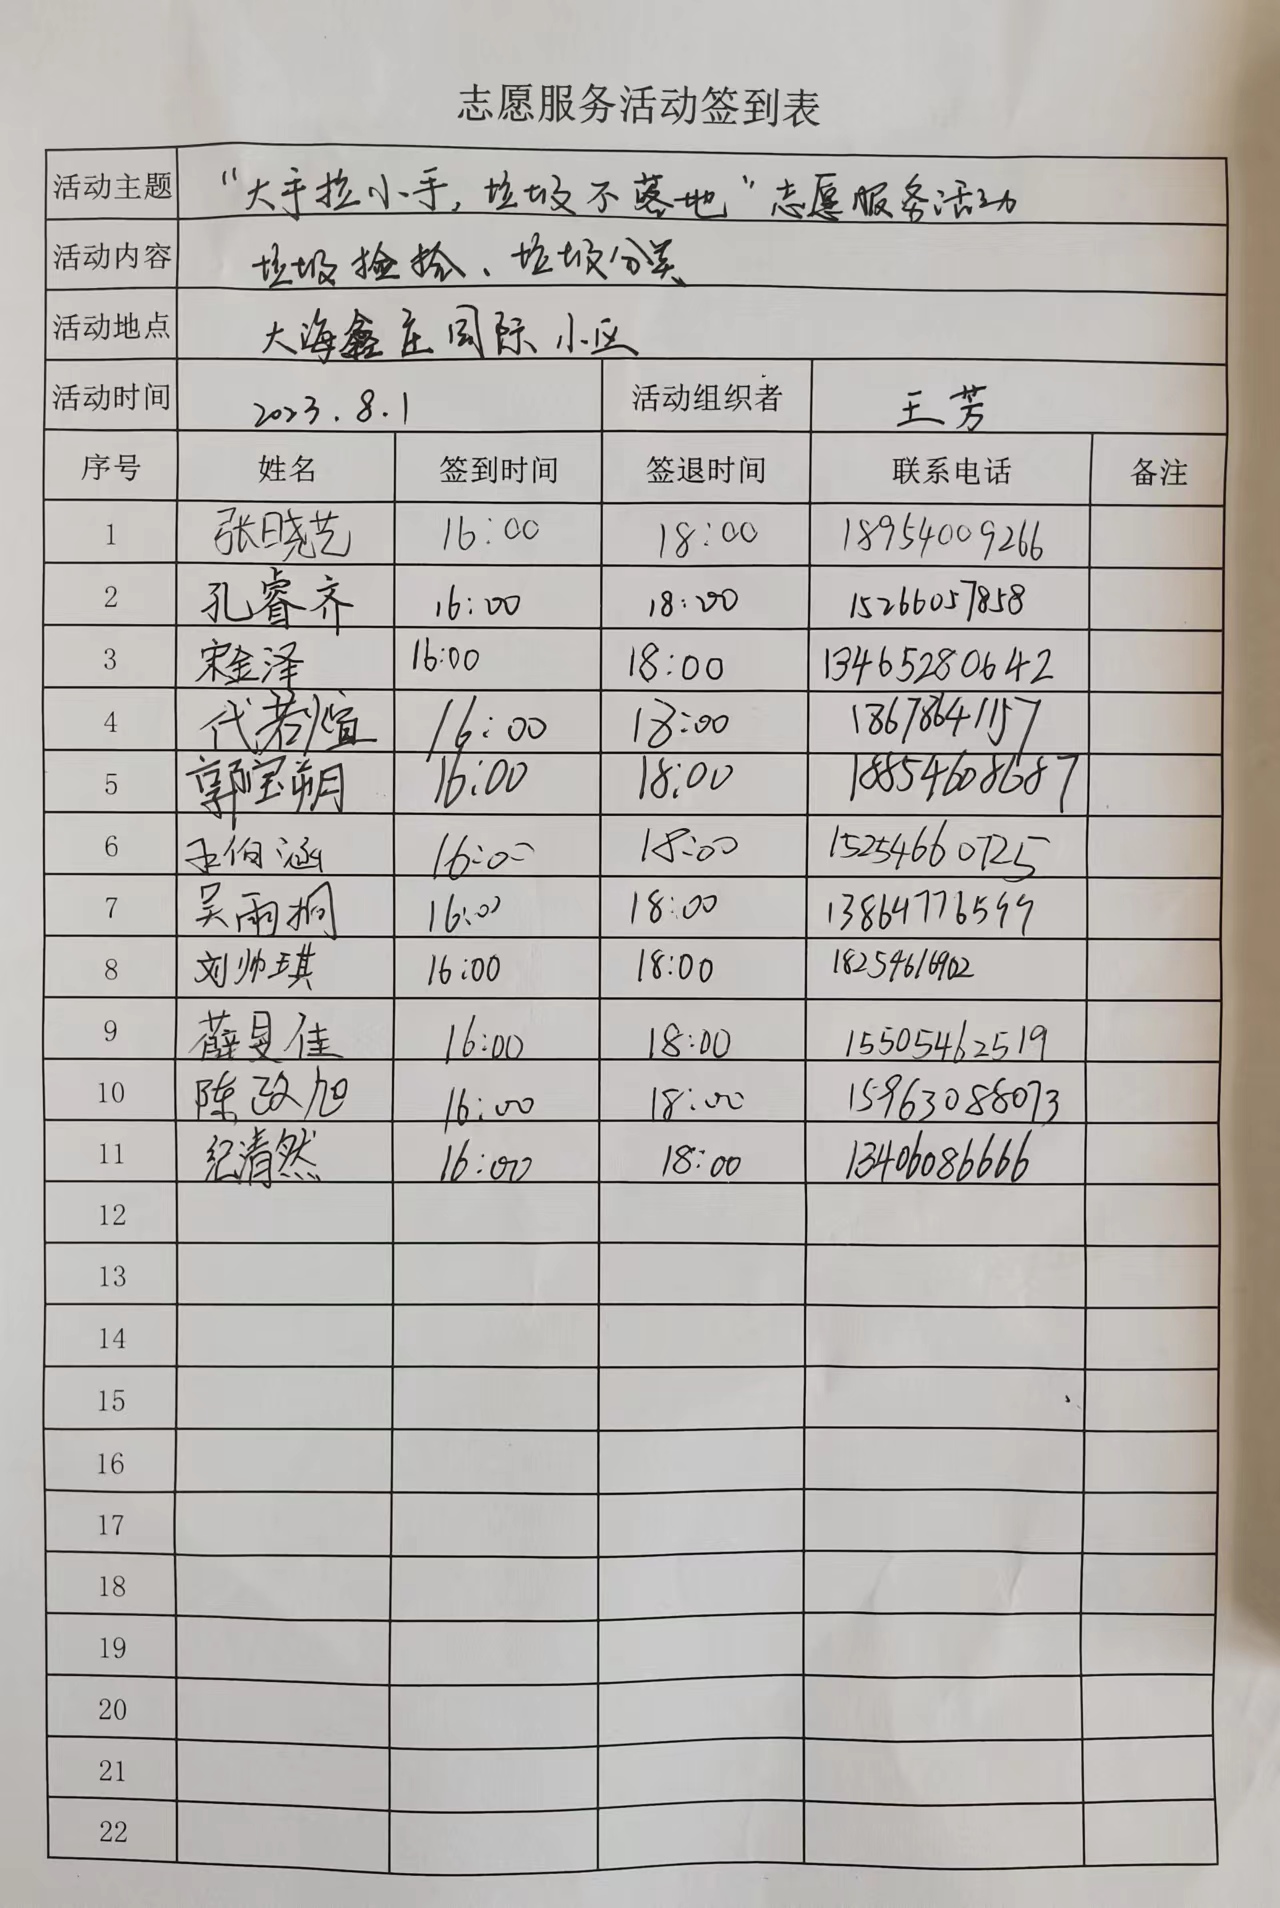 志愿服务活动签到表
活动主题 “大手拉小手，垃圾不落地”志愿服务活动
活动内容 垃圾捡拾、垃圾分类
活动地点 大海鑫庄国际小区
活动时间 2023.8.1 活动组织者 王芳
序号 姓名 签到时间 签退时间 联系电话 备注
1 张晓艺 16:00 18:00 18954009266
2 孔睿齐 16:00 18:00 15266057858
3 宋金泽 16:00 18:00 13465280642
4 代若煊 16:00 18:00 18678641157
5 郭宝朔 16:00 18:00 18854608687
6 王伯涵 16:00 18:00 15254660725
7 吴雨桐 16:00 18:00 13864776599
8 刘帅琪 16:00 18:00 18254616902
9 薛旻佳 16:00 18:00 15505462519
10 陈政旭 16:00 18:00 15963088073
11 纪清然 16:00 18:00 13406086666
12
13
14
15
16
17
18
19
20
21
22